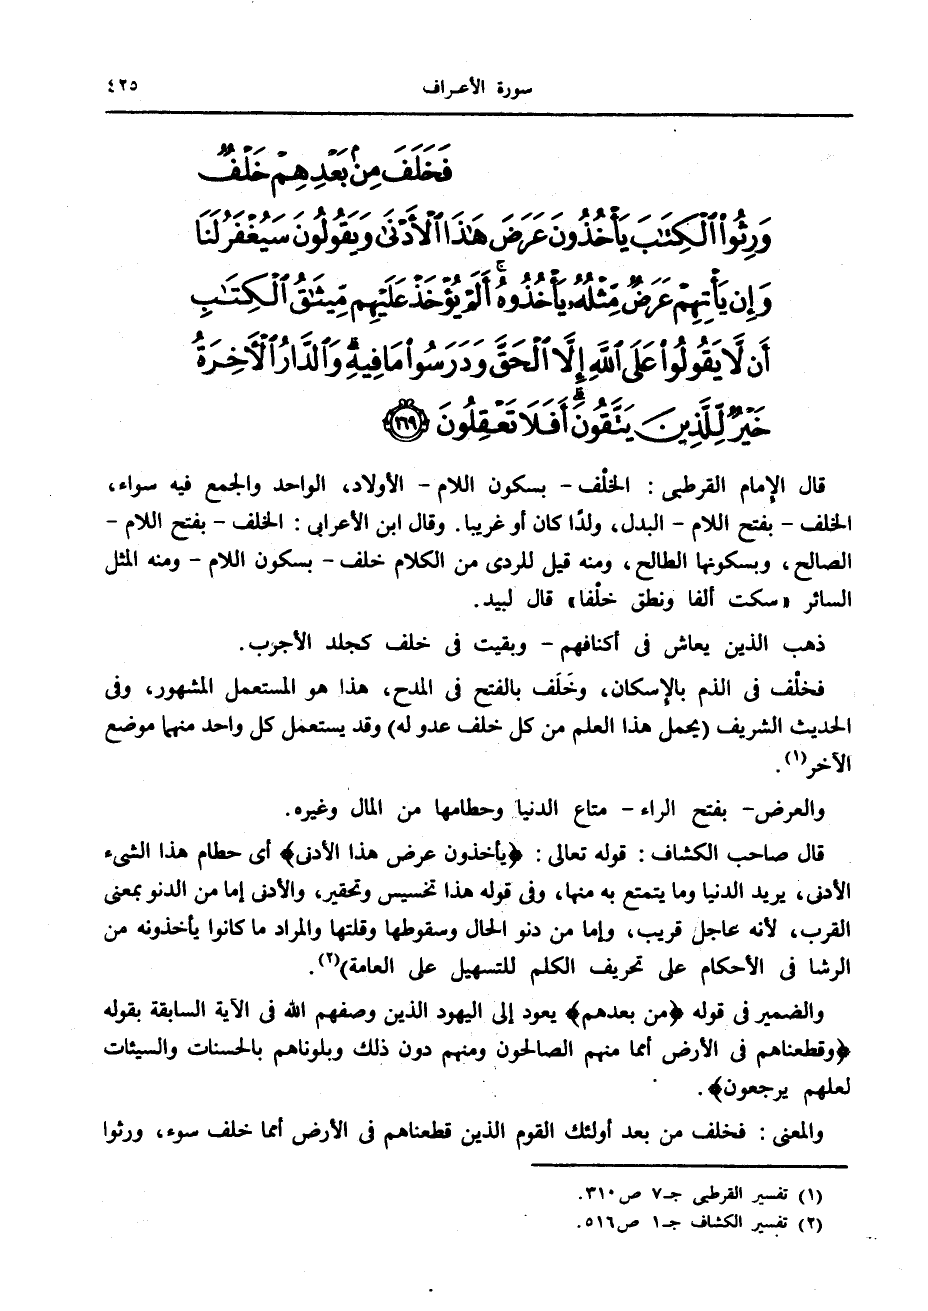 سورة الأعراف ٤٢٥
فَخَلَفَ مِنۢ بَعْدِهِمْ خَلْفٌ
وَرِثُوا۟ ٱلْكِتَٰبَ يَأْخُذُونَ عَرَضَ هَٰذَا ٱلْأَدْنَىٰ وَيَقُولُونَ سَيُغْفَرُ لَنَا
وَإِن يَأْتِهِمْ عَرَضٌ مِّثْلُهُۥ يَأْخُذُوهُ ۚ أَلَمْ يُؤْخَذْ عَلَيْهِم مِّيثَٰقُ ٱلْكِتَٰبِ
أَن لَّا يَقُولُوا۟ عَلَى ٱللَّهِ إِلَّا ٱلْحَقَّ وَدَرَسُوا۟ مَا فِيهِ ۗ وَٱلدَّارُ ٱلْءَاخِرَةُ
خَيْرٌ لِّلَّذِينَ يَتَّقُونَ ۗ أَفَلَا تَعْقِلُونَ ﴿١٦٩﴾
قال الإمام القرطبى : الخلْف - بسكون اللام - الأولاد، الواحد والجمع فيه سواء،
الخلف - بفتح اللام - البدل، ولدًا كان أو غريبا. وقال ابن الأعرابى : الخلف - بفتح اللام -
الصالح، وبسكونها الطالح، ومنه قيل للردى من الكلام خلف - بسكون اللام - ومنه المثل
السائر «سكت ألفا ونطق خلْفا» قال لبيد.
ذهب الذين يعاش فى أكنافهم - وبقيت فى خلف كجلد الأجرب.
فخلْف فى الذم بالإسكان، وخَلَف بالفتح فى المدح، هذا هو المستعمل المشهور، وفى
الحديث الشريف (يحمل هذا العلم من كل خلف عدو له) وقد يستعمل كل واحد منهما موضع
الآخر(١).
والعرض- بفتح الراء - متاع الدنيا وحطامها من المال وغيره.
قال صاحب الكشاف : قوله تعالى : ﴿يأخذون عرض هذا الأدنى﴾ أى حطام هذا الشىء
الأدنى، يريد الدنيا وما يتمتع به منها، وفى قوله هذا تخسيس وتحقير، والأدنى إما من الدنو بمعنى
القرب، لأنه عاجل قريب، وإما من دنو الحال وسقوطها وقلتها والمراد ما كانوا يأخذونه من
الرشا فى الأحكام على تحريف الكلم للتسهيل على العامة)(٢).
والضمير فى قوله ﴿من بعدهم﴾ يعود إلى اليهود الذين وصفهم الله فى الآية السابقة بقوله
﴿وقطعناهم فى الأرض أمما منهم الصالحون ومنهم دون ذلك وبلوناهم بالحسنات والسيئات
لعلهم يرجعون﴾.
والمعنى : فخلف من بعد أولئك القوم الذين قطعناهم فى الأرض أمما خلف سوء، ورثوا
(١) تفسير القرطبى جـ٧ ص٣١٠.
(٢) تفسير الكشاف جـ١ ص٥١٦.